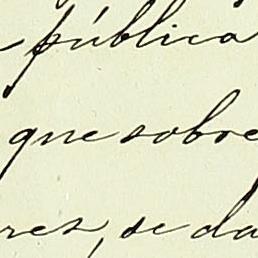 pública
que sobre
res, se da